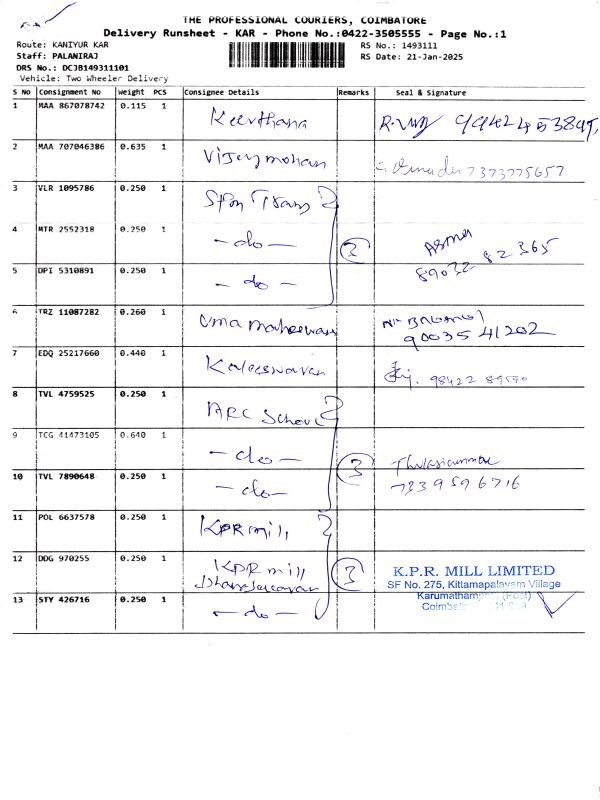 THE PROFESSIONAL COURIERS, COIMBATORE
Delivery Runsheet - KAR - Phone No.:0422-3505555 - Page No.:1
Route: KANIYUR KAR
RS No.: 1493111
Staff: PALANIRAJ
RS Date: 21-Jan-2025
DRS No.: DCJB149311101
Vehicle: Two Wheeler Delivery
S No Consignment No Weight PCS Consignee Details Remarks Seal & Signature
1 MAA 867078742 0.115 1 Keerthana
2 MAA 707046386 0.635 1 Vijaymohan 7373775657
3 VLR 1095786 0.250 1
4 MTR 2552318 0.250 1 -do- 3 Asma
89032 82365
5 DPI 5310891 0.250 1 -do-
6 TRZ 11087282 0.260 1 Uma maheswari
90035 41202
7 EDQ 25217660 0.440 1 Kaleeswaran
8 TVL 4759525 0.250 1 ARC School
9 TCG 41473105 0.640 1 -do- 3
10 TVL 7890648 0.250 1 -do- 7339596716
11 POL 6637578 0.250 1 KPR mill
12 DDG 970255 0.250 1 KPR mill 3
K.P.R. MILL LIMITED
SF No. 275, Kittampalayam Village
13 STY 426716 0.250 1 -do-